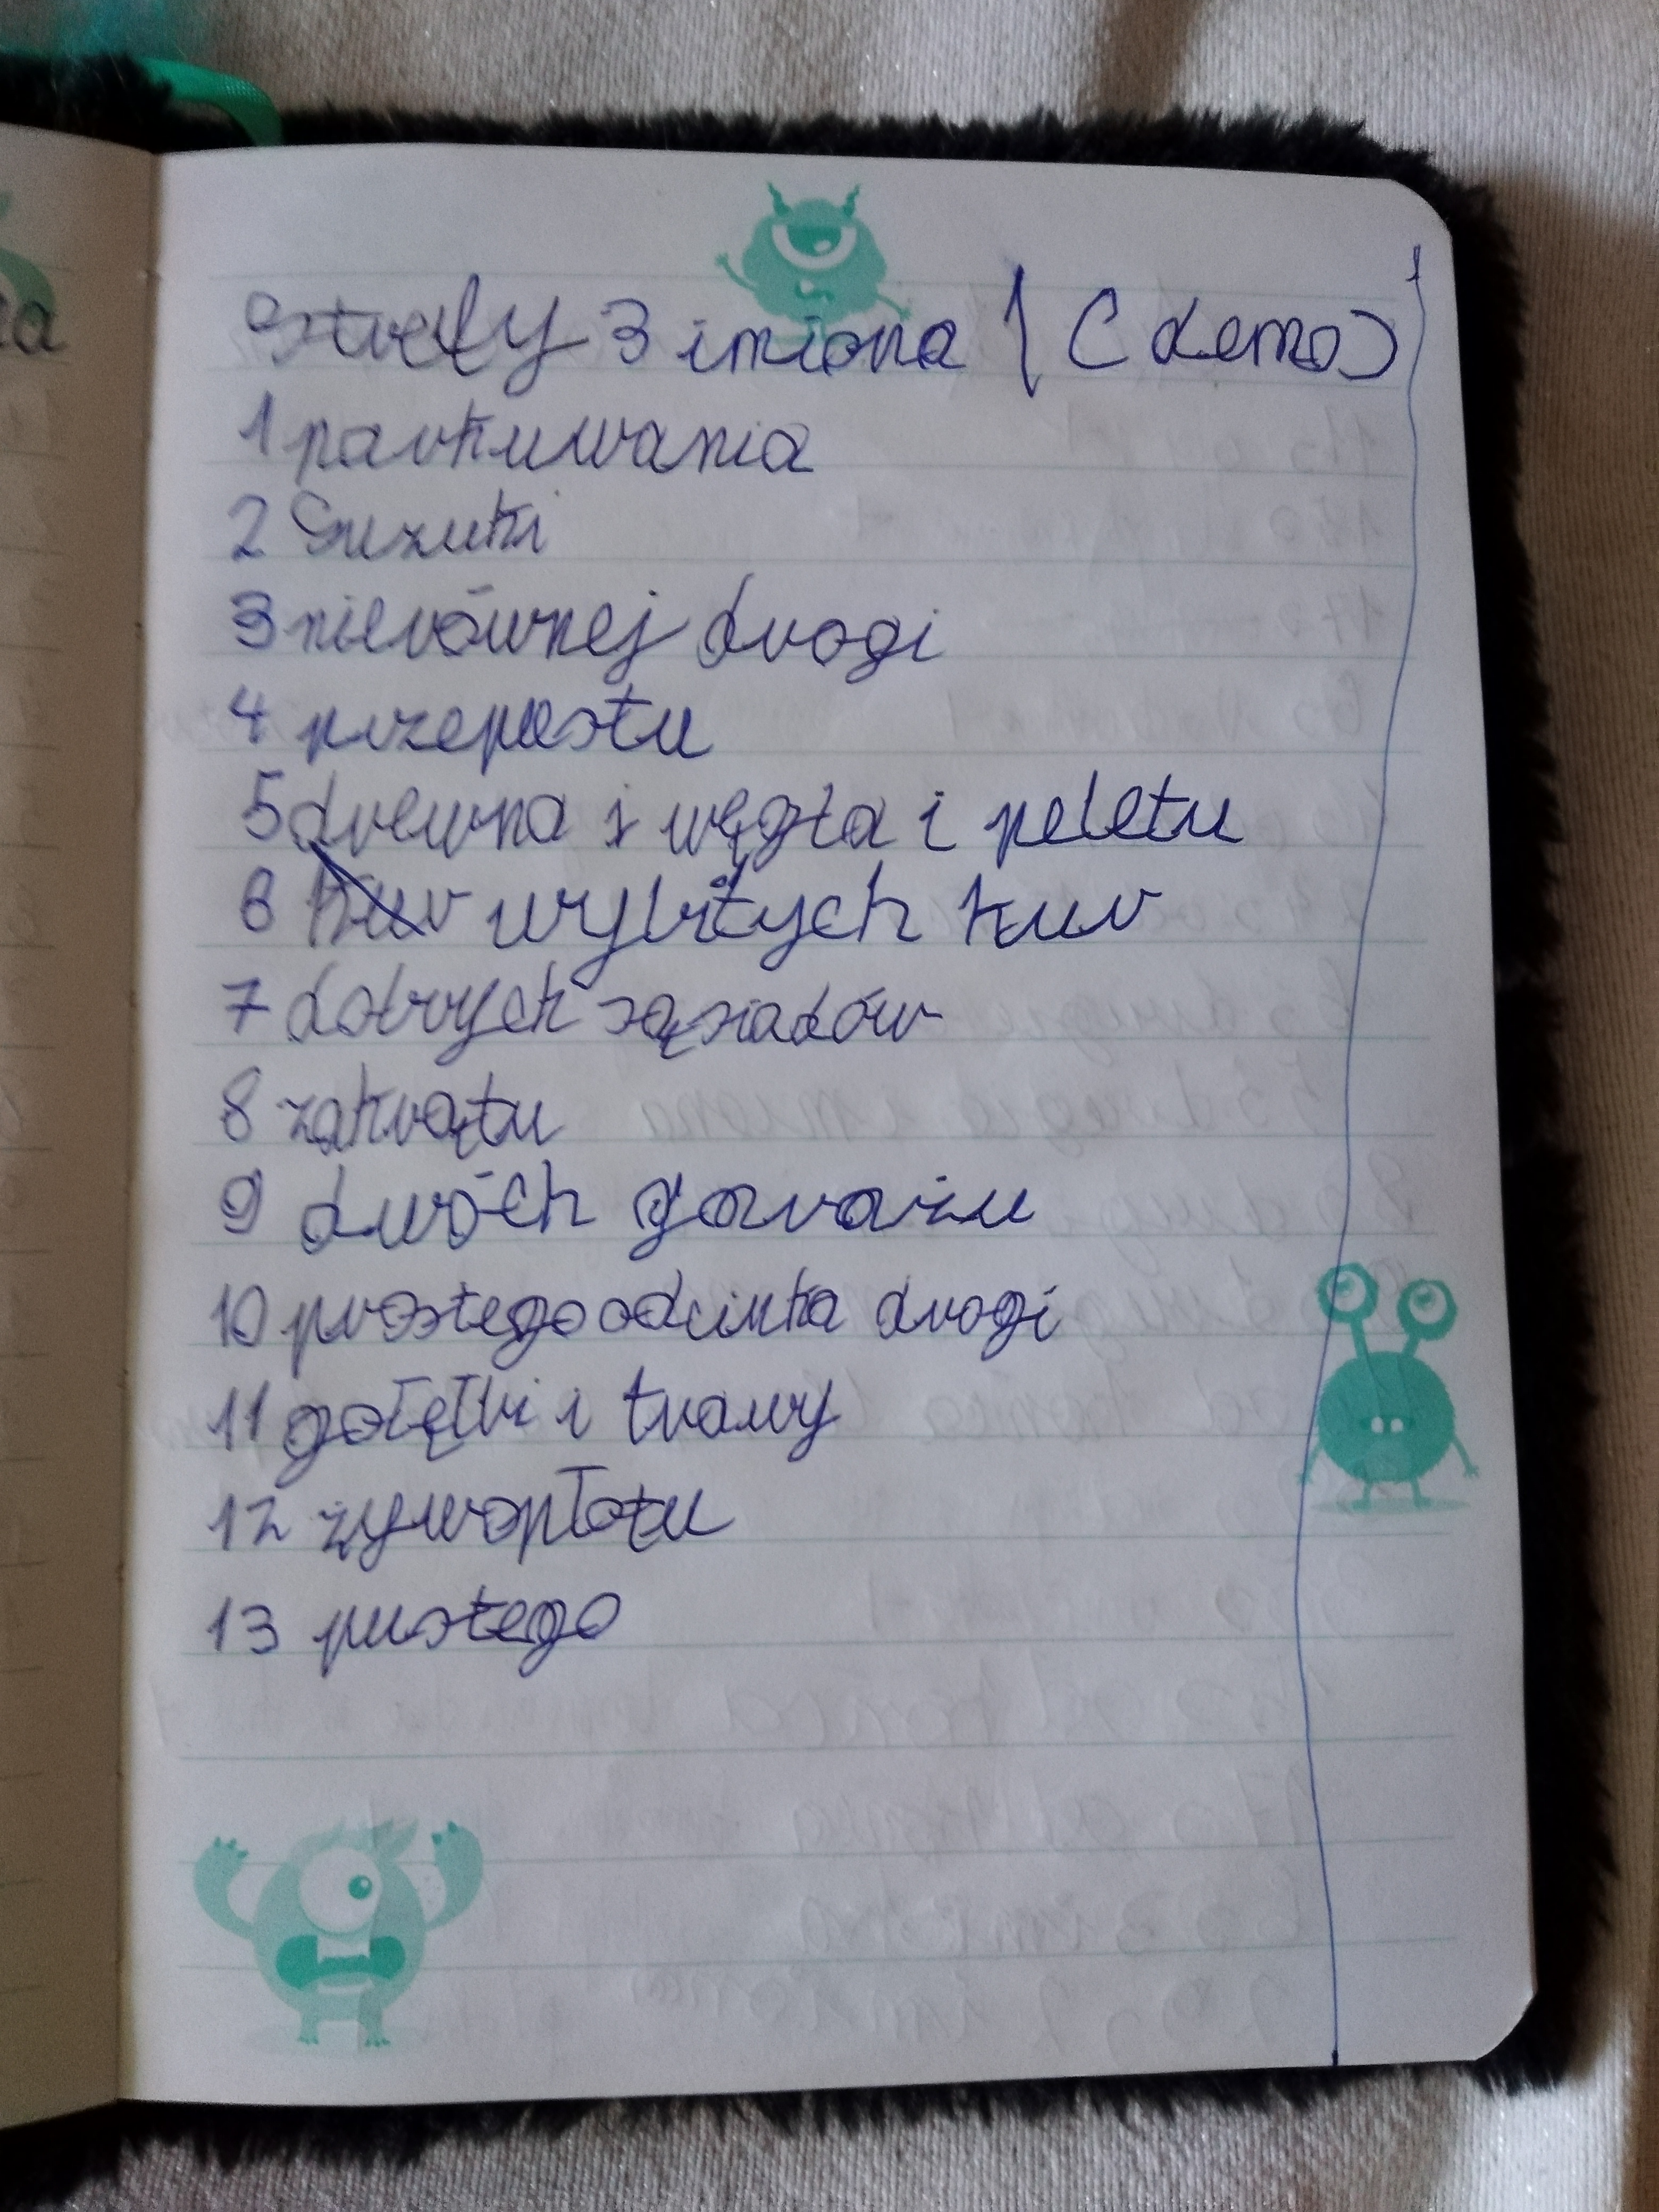 Strefy 3 imiona | (demo)
1 parkuwania
2 Suzuki
3 nierównej drogi
4 przepustu
5 drewna i węgla i peletu
6 kur wybitych kur
7 dobrych sąsiadów
8 zakrątu
9 dwóch garażu
10 prostego odcinka drogi
11 gołębi i trawy
12 żywopłotu
13 pustego